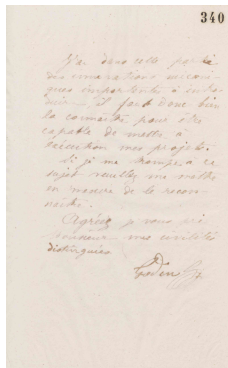 340
J'ai dans cette partie
des innovations
importantes à intro
duire, il faut donc bien
la connaître pour être
capable de mettre à
exécution mes projets.
Si je me trompe à ce
sujet veuillez me mettre
en mesure de le recon
naître.
Agréez je vous prie
Monsieur mes civilités
distinguées
Godin